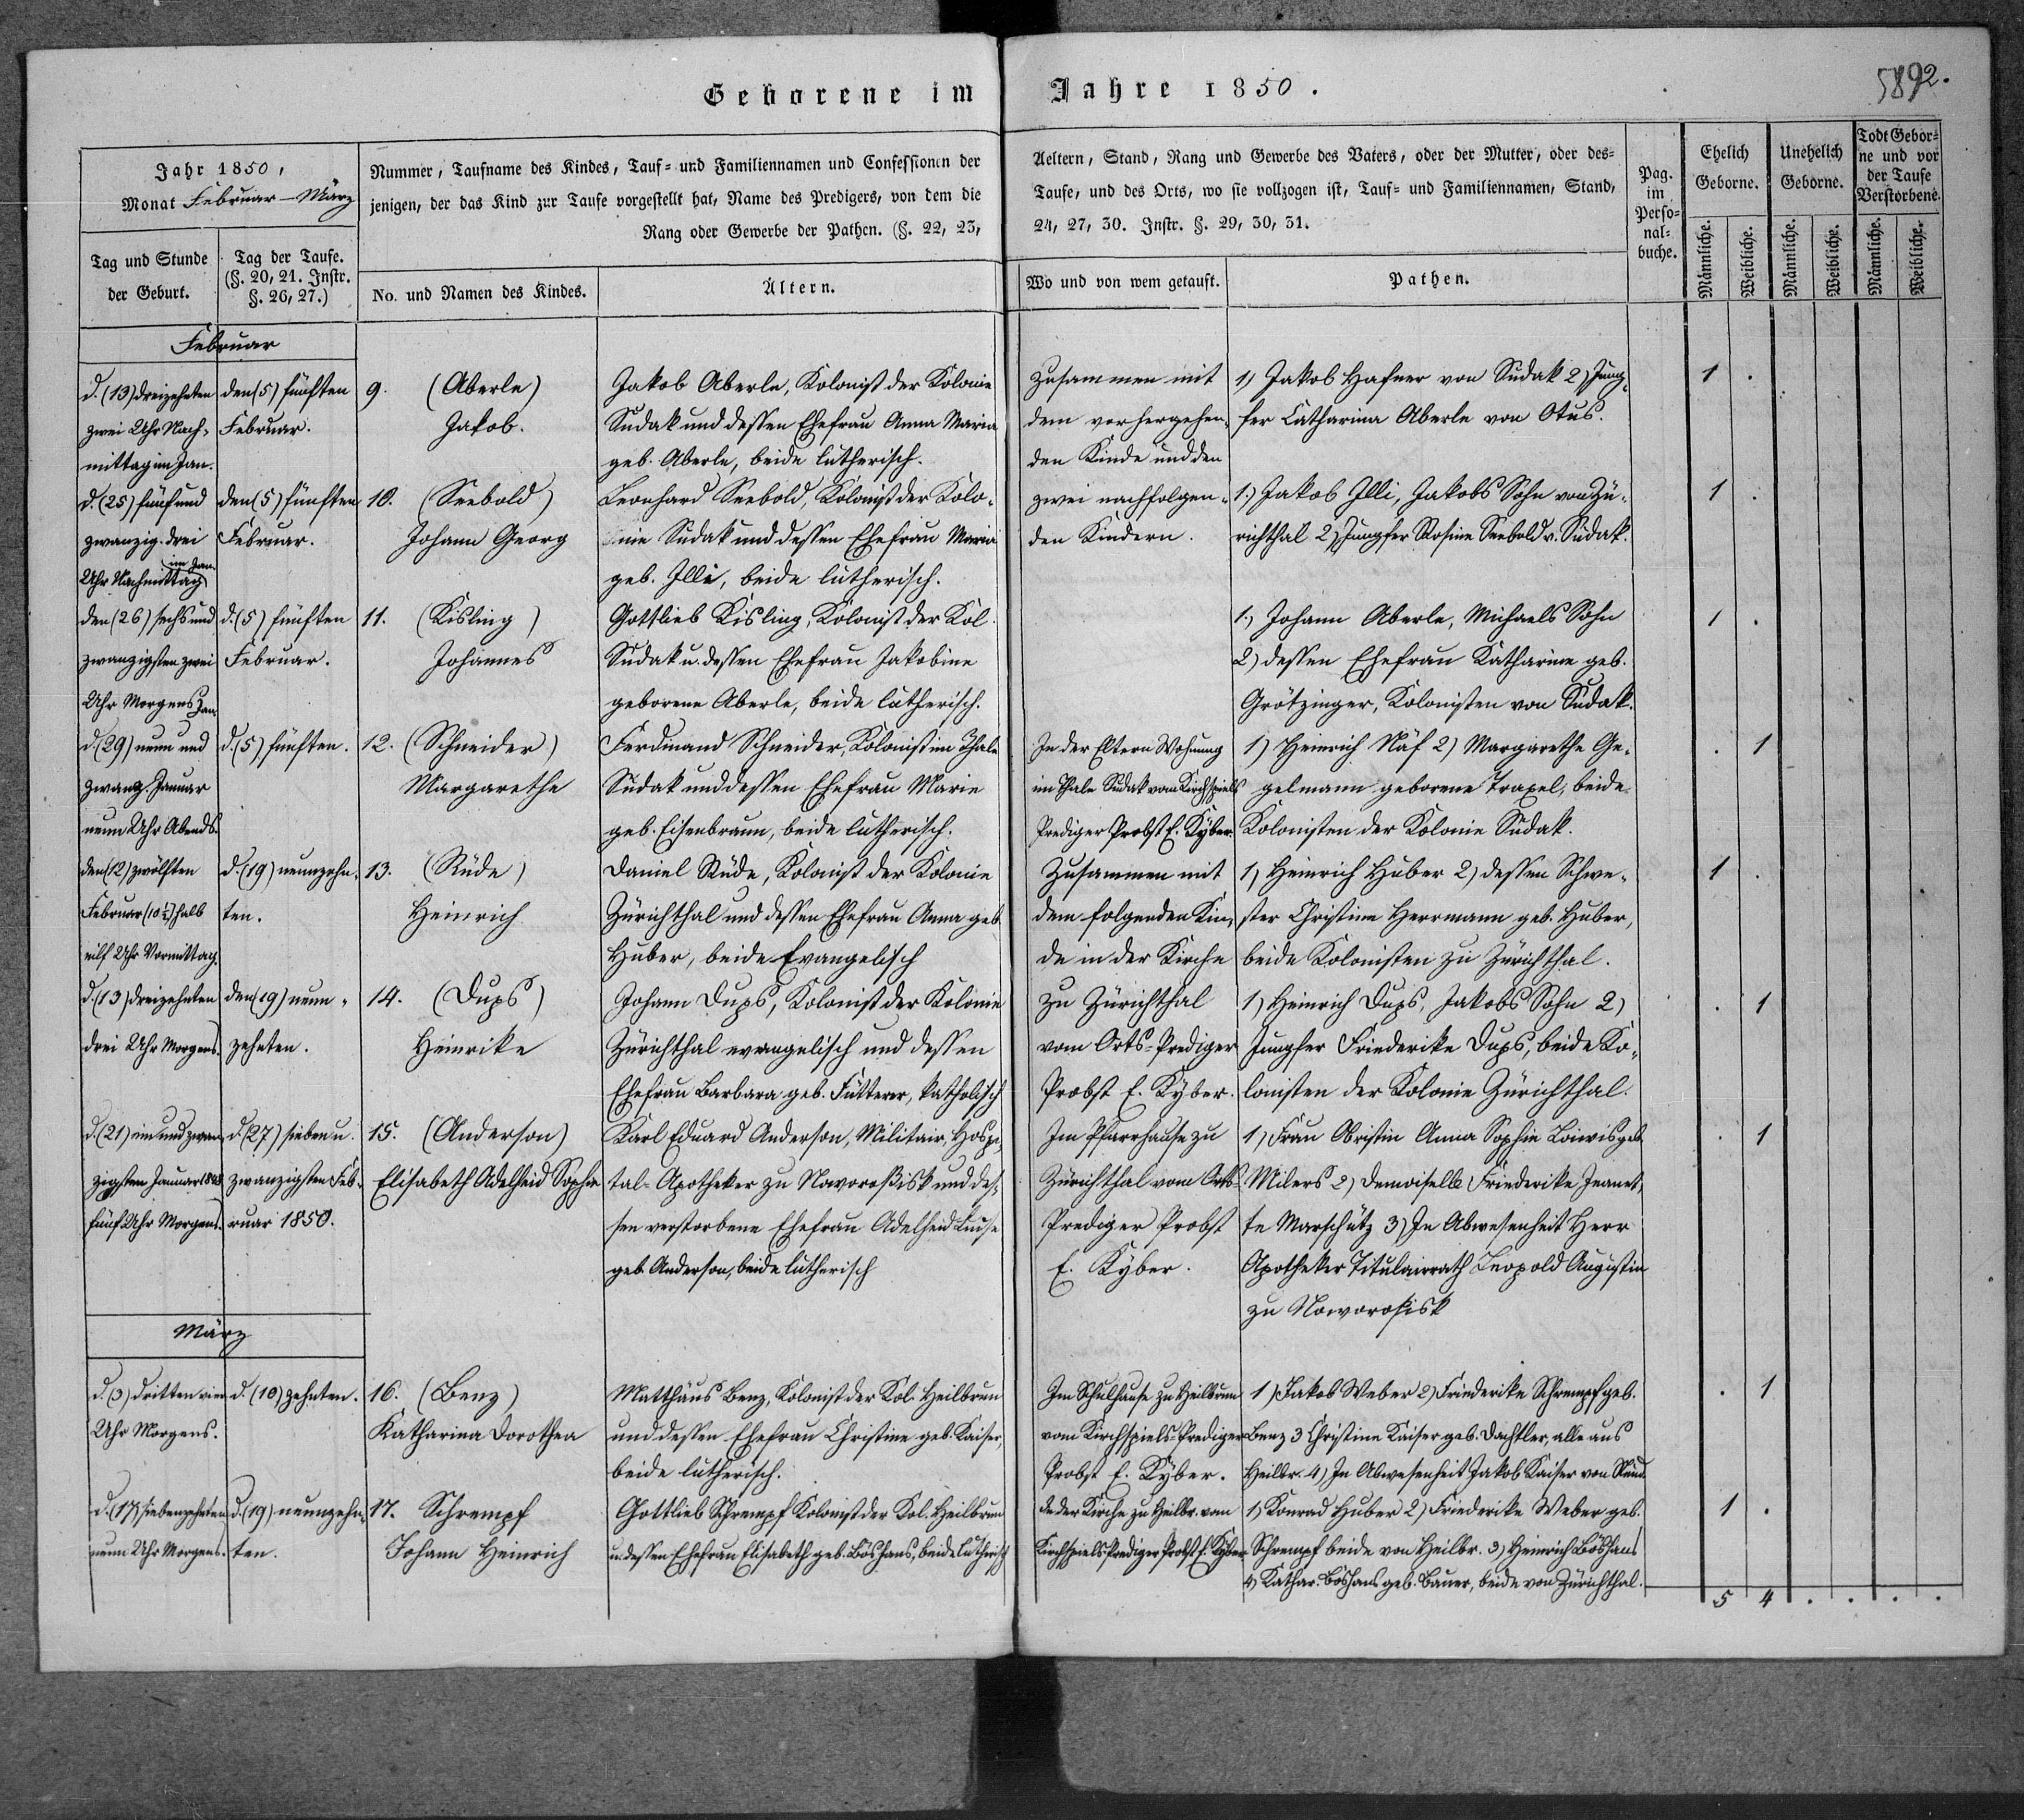 Geborene im Jahre 1850.
5892.
Jahr 1850,
Monat Februar – März
Nummer, Taufname des Kindes, Tauf- und Familiennamen und Confessionen der
jenigen, der das Kind zur Taufe vorgestellt hat, Name des Predigers, von dem die
Rang oder Gewerbe der Pathen. (§. 22, 23,
Aeltern, Stand, Rang und Gewerbe des Vaters, oder der Mutter, oder des-
Taufe, und des Orts, wo sie vollzogen ist, Tauf- und Familiennamen, Stand,
24, 27, 30. Instr. §. 29, 30, 31.
Pag.
im
Perso-
nal-
buche.
Ehelich
Geborne.
Unehelich
Geborne.
Todt Gebor-
ne und vor
der Taufe
Verstorbene.
Männliche.
Weibliche.
Männliche.
Weibliche.
Männliche.
Weibliche.
Tag und Stunde
der Geburt.
Tag der Taufe.
(§. 20, 21. Instr.
§. 26, 27.)
No. und Namen des Kindes.
Ältern.
Wo und von wem getauft.
Pathen.
Februar
d. (13) dreizehnten
zwei Uhr Nach-
mittag im Jan.
den (5) fünften
Februar.
9. (Aberle)
Jakob.
Jakob Aberle, Kolonist der Kolonie
Sudak und dessen Ehefrau Anna Maria
geb. Aberle, beide lutherisch.
Zusammen mit
dem vorhergehen-
den Kinde und den
1) Jakob Hafner von Sudak 2) Jung-
fer Catharina Aberle von Otus.
1 .
d. (25) fünf und
zwanzig. drei
Uhr Nachmittag im Jan.
den (5) fünften
Februar.
10. (Seebold)
Johann Georg
Leonhard Seebold, Kolonist der Kolo-
nie Sudak und dessen Ehefrau Maria
geb. Illi, beide lutherisch.
zwei nachfolgen-
den Kindern.
1.) Jakob Illi, Jakobs Sohn von Zü-
richthal 2) Jungfer Rosine Seebold v. Sudak.
1 .
den (26) sechs und
zwanzigsten zwei
Uhr Morgens Jan.
d. (5) fünften
Februar.
11. (Kisling)
Johannes
Gottlieb Kisling, Kolonist der Kol.
Sudak u. dessen Ehefrau Jakobine
geborene Aberle, beide lutherisch.
1.) Johann Aberle, Michaels Sohn
2) dessen Ehefrau Katharine geb.
Grötzinger, Kolonisten von Sudak.
1 .
d. (29) neun und
zwanz. Januar
neun Uhr Abends.
d. (5) fünften.
12. (Schneider)
Margarethe
Ferdinand Schneider, Kolonist im Thale
Sudak und dessen Ehefrau Marie
geb. Eisenbraun, beide lutherisch.
In der Eltern Wohnung
im Thale Sudak vom Kirchspiels
Prediger Probst E. Kyber.
1) Heinrich Näf 2) Margarethe Ge-
gelmann geborene Traxel, beide
Kolonisten der Kolonie Sudak.
. 1
den (12) zwölften
Februar (10½) halb
eilf Uhr Vormittag.
d. (19) neunzehn-
ten.
13. (Rüde)
Heinrich
Daniel Rüde, Kolonist der Kolonie
Zürichthal und dessen Ehefrau Anna geb.
Huber, beide Evangelisch
Zusammen mit
dem folgenden Kin-
de in der Kirche
1) Heinrich Huber 2) dessen Schwe-
ster Christine Herrmann geb. Huber,
beide Kolonisten zu Zürichthal.
1 .
d. (13) dreizehnten
drei Uhr Morgens.
den (19) neun-
zehnten.
14. (Dups)
Heinrike
Johann Dups, Kolonist der Kolonie
Zürichthal evangelisch und dessen
Ehefrau Barbara geb. Fütterer, katholisch
zu Zürichthal
vom Orts-Prediger
Probst E. Kyber.
1) Heinrich Dups, Jakobs Sohn 2)
Jungfer Friederike Dups, beide Ko-
lonisten der Kolonie Zürichthal.
. 1
d. (21) ein und zwan-
zigsten Januar
fünf Uhr Morgens.
d. (27) sieben u.
zwanzigsten Feb-
ruar 1850.
15. (Anderson)
Elisabeth Adelheid Sophie
Karl Eduard Anderson, Militair, Hospi-
tal-Apotheker zu Noworoßisk und des-
sen verstorbene Ehefrau Adelheid Luise
geb. Anderson, beide lutherisch
Im Pfarrhause zu
Zürichthal vom Orts-
Prediger Probst
E. Kyber.
1) Frau Obristin Anna Sophie Loiwis geb.
Milers 2) Demoiselle Friederike Jeanet-
te Marschütz 3) In Abwesenheit Herr
Apotheker Titulairrath Leopold Augustin
zu Noworoßisk
. 1
März
d. (3) dritten vier
Uhr Morgens.
d. (10) zehnten.
16. (Benz)
Katharina Dorothea
Matthäus Benz, Kolonist der Kol. Heilbrun
und dessen Ehefrau Christine geb. Kaiser,
beide lutherisch.
Im Schulhause zu Heilbrun
vom Kirchspiels-Prediger
Probst E. Kyber.
1) Jakob Weber 2) Friederike Schrempf geb.
Benz 3 Christine Kaiser geb. Dachtler, alle aus
Heilbr. 4) In Abwesenheit Jakob Kaiser von
. 1
d. (17) siebenzehnten
neun Uhr Morgens.
d. (19) neunzehn-
ten.
17. Schrempf
Johann Heinrich
Gottlieb Schrempf Kolonist der Kol. Heilbrun
u. dessen Ehefrau Elisabeth geb. Böshans, beide lutherisch
In der Kirche zu Heilbr. vom
Kirchspiels-Prediger Probst E. Kyber
1) Konrad Huber 2) Friederike Weber geb.
Schrempf beide von Heilbr. 3) Heinrich Böshans
4) Kathar. Böshans geb. Bauer, beide von Zürichthal.
1 .
5 4 . . . .